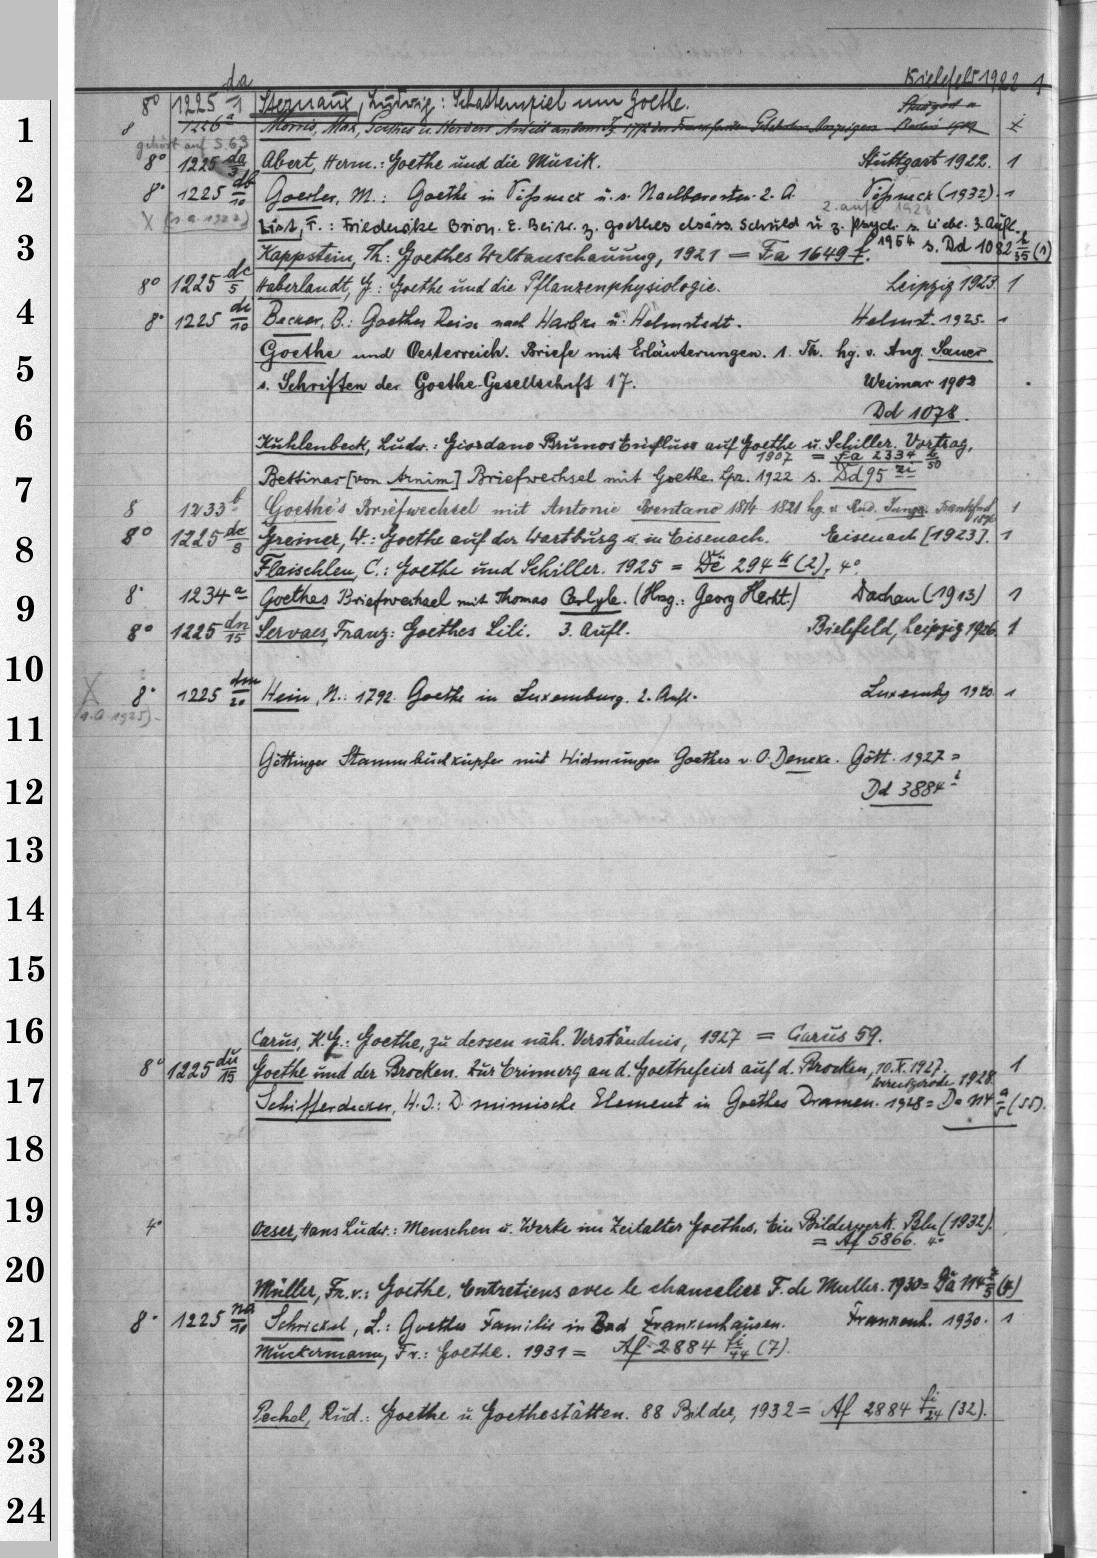 8° 1225 da/1 Sternaux, Ludwig: Schattenspiel um Goethe. Bielefeld 1922 1
8 1226 a Morris, Max, Goethes u. Herders Anteil an dem Jg. 1772 der Frankfurter Gelehrten Anzeigen
gehört auf S. 63
8° 1225 da/3 Abert, Herm.: Goethe und die Musik. Stuttgart 1922. 1
8° 1225 db/10 Goerler, M.: Goethe in Pößneck u. s. Nachbarorten. 2. A. Pößneck (1932). 1
2. Aufl. 1923
X (1. A. 1922)
List, F.: Friederike Brion. E. Beitr. z. Goethes elsäss. Schuld u. z. Psych. s. Liebe. 3. Aufl.
1954 s. Dd 1082 (1)
Kappstein, Th: Goethes Weltanschauung, 1921 = Fa 1649 f.
8° 1225 dc/5 Haberlandt, G: Goethe und die Pflanzenphysiologie. Leipzig 1923. 1
8° 1225 dc/10 Becker, B.: Goethes Reise nach Harbke u. Helmstedt. Helmst. 1925. 1
Goethe und Oesterreich. Briefe mit Erläuterungen. 1. Th. hg. v. Aug. Sauer
s. Schriften der Goethe-Gesellschaft 17. Weimar 1902
Dd 1078.
Kuhlenbeck, Ludw.: Giordano Brunos Einfluss auf Goethe u. Schiller. Vortrag,
1907 = Fa 2334 /50
Bettinas [von Arnim] Briefwechsel mit Goethe. Lpz. 1922 s. Dd 95
8 1233 b Goethe's Briefwechsel mit Antonie Brentano 1814-1821 hg. v. Rud. Jung. Frankfurt 1896 1
8° 1225 de/8 Greiner, W.: Goethe auf der Wartburg u. in Eisenach. Eisenach [1923]. 1
Flaischlen, C.: Goethe und Schiller. 1925 = De 294 (2), 4°.
8° 1234 a Goethes Briefwechsel mit Thomas Carlyle. (Hrsg.: Georg Hecht.) Dachau (1913) 1
8° 1225 dn/15 Servaes, Franz: Goethes Lili. 3. Aufl. Bielefeld, Leipzig 1926. 1
X 8° 1225 dm/20 Hein, N.: 1792. Goethe in Luxemburg. 2. Aufl. Luxembg 1920. 1
(1. A 1925)
Göttinger Stammbuchkupfer mit Widmungen Goethes v. O. Deneke. Gött. 1927 =
Dd 3884 i
Carus, K. G.: Goethe, zu dessen näh. Verständnis, 1927 = Carus 59.
8° 1225 du/15 Goethe und der Brocken. Zur Erinnerg an d. Goethefeier auf d. Brocken, 10.X.1927. 1
Wernigerode 1928.
Schifferdecker, H. J.: D. mimische Element in Goethes Dramen. 1928 = Da 114 a/5 (55).
4° Oeser, Hans Ludw.: Menschen u. Werke im Zeitalter Goethes. Ein Bilderwerk. Bln (1932).
= Af 5866. 4°
Müller, Fr. v.: Goethe. Entretiens avec le chancelier F. de Muller. 1930 = Da 114 /5
8° 1225 na/10 Schrickel, L.: Goethes Familie in Bad Frankenhausen. Frankenh. 1930. 1
Muckermann, Fr.: Goethe. 1931 = Af 2884 fi/44 (7).
Pechel, Rud.: Goethe u. Goethestätten. 88 Bilder, 1932 = Af 2884 fi/24 (32).
1
2
3
4
5
6
7
8
9
10
11
12
13
14
15
16
17
18
19
20
21
22
23
24